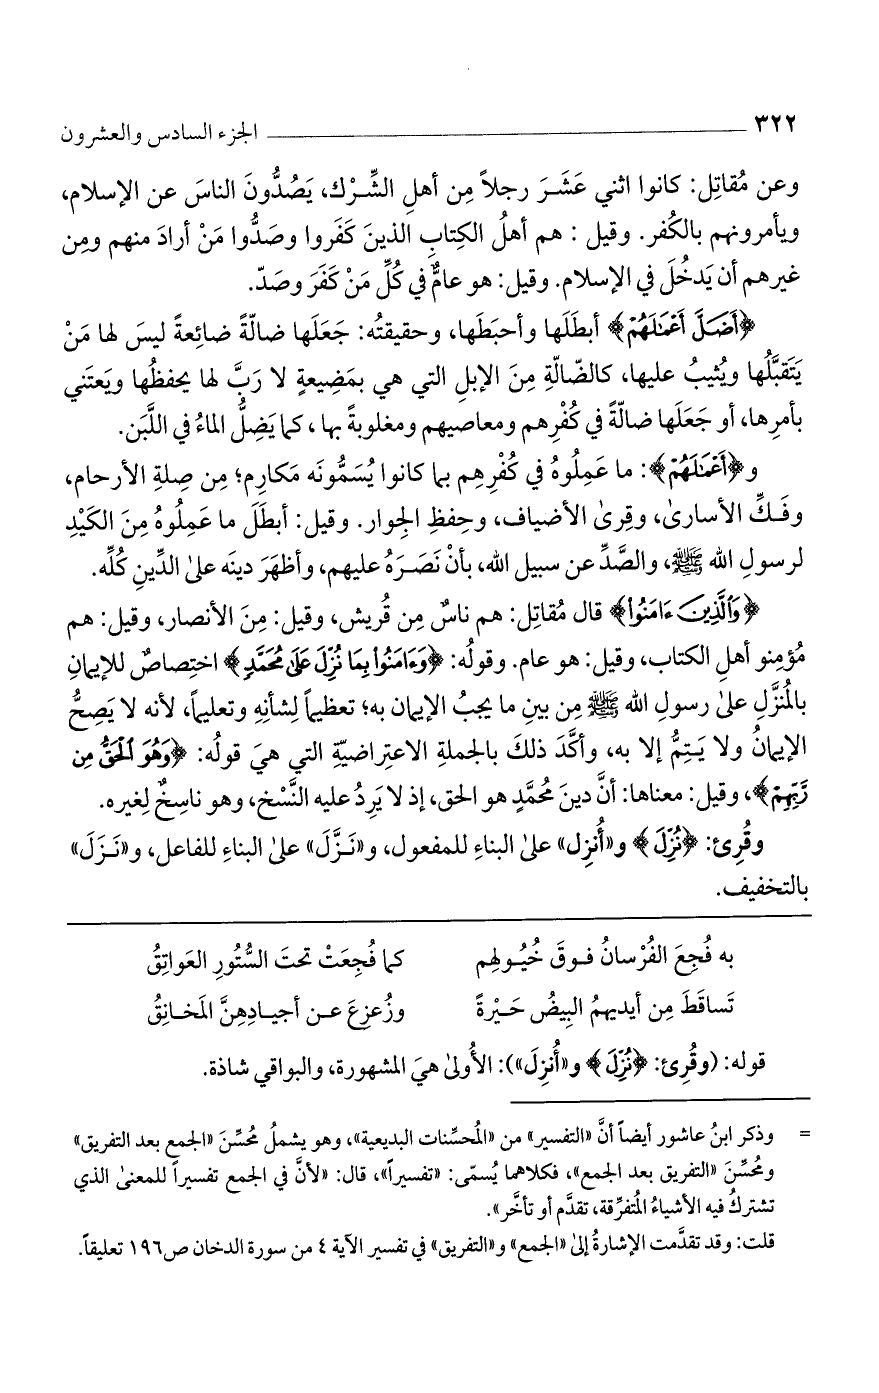 ٣٢٢ الجزء السادس والعشرون
وعن مُقاتِل: كانوا اثني عَشَرَ رجلاً مِن أهلِ الشِّرْك، يَصُدُّونَ الناسَ عن الإسلام،
ويأمرونهم بالكُفر. وقيل: هم أهلُ الكِتابِ الذينَ كَفَروا وصَدُّوا مَنْ أرادَ منهم ومِن
غيرهم أن يَدخُلَ في الإسلام. وقيل: هو عامٌّ في كُلِّ مَنْ كَفَرَ وصَدّ.
﴿أَضَلَّ أَعْمَٰلَهُمْ﴾ أبطَلَها وأحبَطَها، وحقيقتُه: جَعَلَها ضالّةً ضائعةً ليسَ لها مَنْ
يَتَقبَّلُها ويُثيبُ عليها، كالضّالّةِ مِنَ الإبلِ التي هي بمَضِيعةٍ لا رَبَّ لها يحفظُها ويَعتَني
بأمرِها، أو جَعَلَها ضالّةً في كُفْرِهم ومعاصيهم ومغلوبةً بها، كما يَضِلُّ الماءُ في اللَّبَن.
و﴿أَعْمَٰلَهُمْ﴾: ما عَمِلُوهُ في كُفْرِهِم بما كانوا يُسَمُّونَه مَكارِم؛ مِن صِلةِ الأرحام،
وفَكِّ الأسارىٰ، وقِرىٰ الأضياف، وحِفظِ الجِوار. وقيل: أبطَلَ ما عَمِلُوهُ مِنَ الكَيْدِ
لرسولِ الله ﷺ، والصَّدِّ عن سبيل الله، بأنْ نَصَرَهُ عليهم، وأظهَرَ دينَه علىٰ الدِّينِ كُلِّه.
﴿وَالَّذِينَ ءَامَنُوا۟﴾ قال مُقاتِل: هم ناسٌ مِن قُريش، وقيل: مِنَ الأنصار، وقيل: هم
مُؤمِنو أهلِ الكتاب، وقيل: هو عام. وقولُه: ﴿وَءَامَنُوا۟ بِمَا نُزِّلَ عَلَىٰ مُحَمَّدٍ﴾ اختِصاصٌ للإيمانِ
بالمُنزَّلِ علىٰ رسولِ الله ﷺ مِن بينِ ما يجبُ الإيمان به؛ تعظيماً لِشأنِهِ وتعليماً، لأنه لا يَصِحُّ
الإيمانُ ولا يَتِمُّ إلا به، وأكَّدَ ذلكَ بالجملةِ الاعتِراضيّةِ التي هيَ قولُه: ﴿وَهُوَ الْحَقُّ مِن
رَّبِّهِمْ﴾، وقيل: معناها: أنَّ دينَ مُحمَّدٍ هو الحق، إذ لا يَرِدُ عليه النَّسْخ، وهو ناسِخٌ لِغيره.
وقُرِئ: ﴿نُزِّلَ﴾ و«أُنزِل» علىٰ البناءِ للمفعول، و«نَزَّلَ» علىٰ البناءِ للفاعل، و«نَزَلَ»
بالتخفيف.
به فُجِعَ الفُرْسانُ فوقَ خُيُولِهم كما فُجِعَتْ تحتَ السُّتُورِ العَواتِقُ
تَساقَطَ مِن أيديهمُ البِيضُ حَيْرةً وزُعزِعَ عن أجيادِهِنَّ المَخانِقُ
قوله: (وقُرِئ: ﴿نُزِّلَ﴾ و«أُنزِلَ»): الأُولىٰ هيَ المشهورة، والبواقي شاذة.
= وذكر ابنُ عاشور أيضاً أنَّ «التفسير» من «المُحسِّنات البديعية»، وهو يشملُ مُحسِّنَ «الجمع بعد التفريق»
ومُحسِّنَ «التفريق بعد الجمع»، فكلاهما يُسمّى: «تفسيراً»، قال: «لأنَّ في الجمع تفسيراً للمعنىٰ الذي
تشتركُ فيه الأشياءُ المُتفرِّقة، تقدَّم أو تأخَّر».
قلت: وقد تقدَّمت الإشارةُ إلىٰ «الجمع» و«التفريق» في تفسير الآية ٤ من سورة الدخان ص١٩٦ تعليقاً.